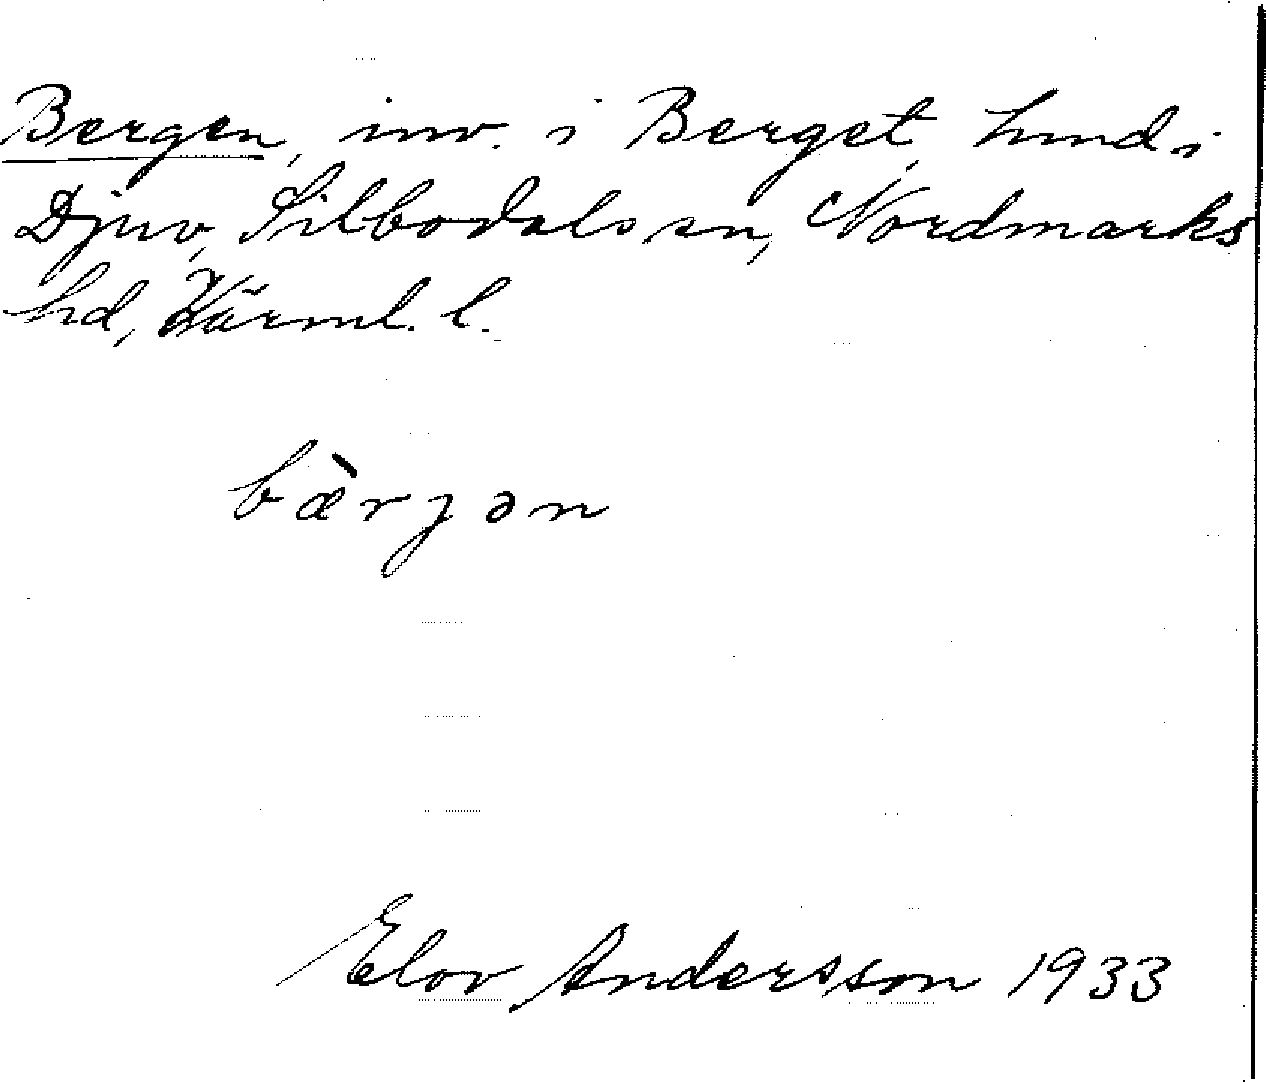 Bergen, inv. i Berget, hmd i
Djuv, Silbodals sn, Nordmarks
hd, Värml. l.
bæ̀rjən
Elov Andersson 1933